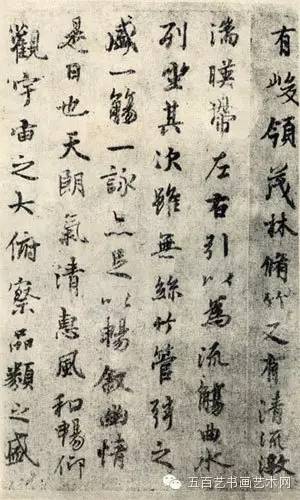 有峻領茂林脩竹又有清流激
湍暎帶左右引以為流觴曲水
列坐其次雖無絲竹管弦之
盛一觴一詠亦足以暢敘幽情
是日也天朗氣清惠風和暢仰
觀宇宙之大俯察品類之盛
五百艺书画艺术网